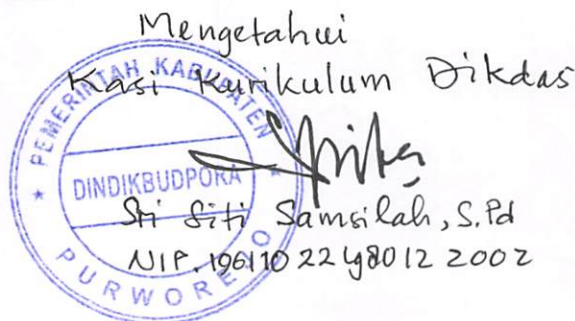 Mengetahui
Kasi Kurikulum Dikdas
PEMERINTAH KABUPATEN
DINDIKBUDPORA
PURWOREJO
Sri Siti Samsilah, S.Pd
NIP. 19611022 198012 2002